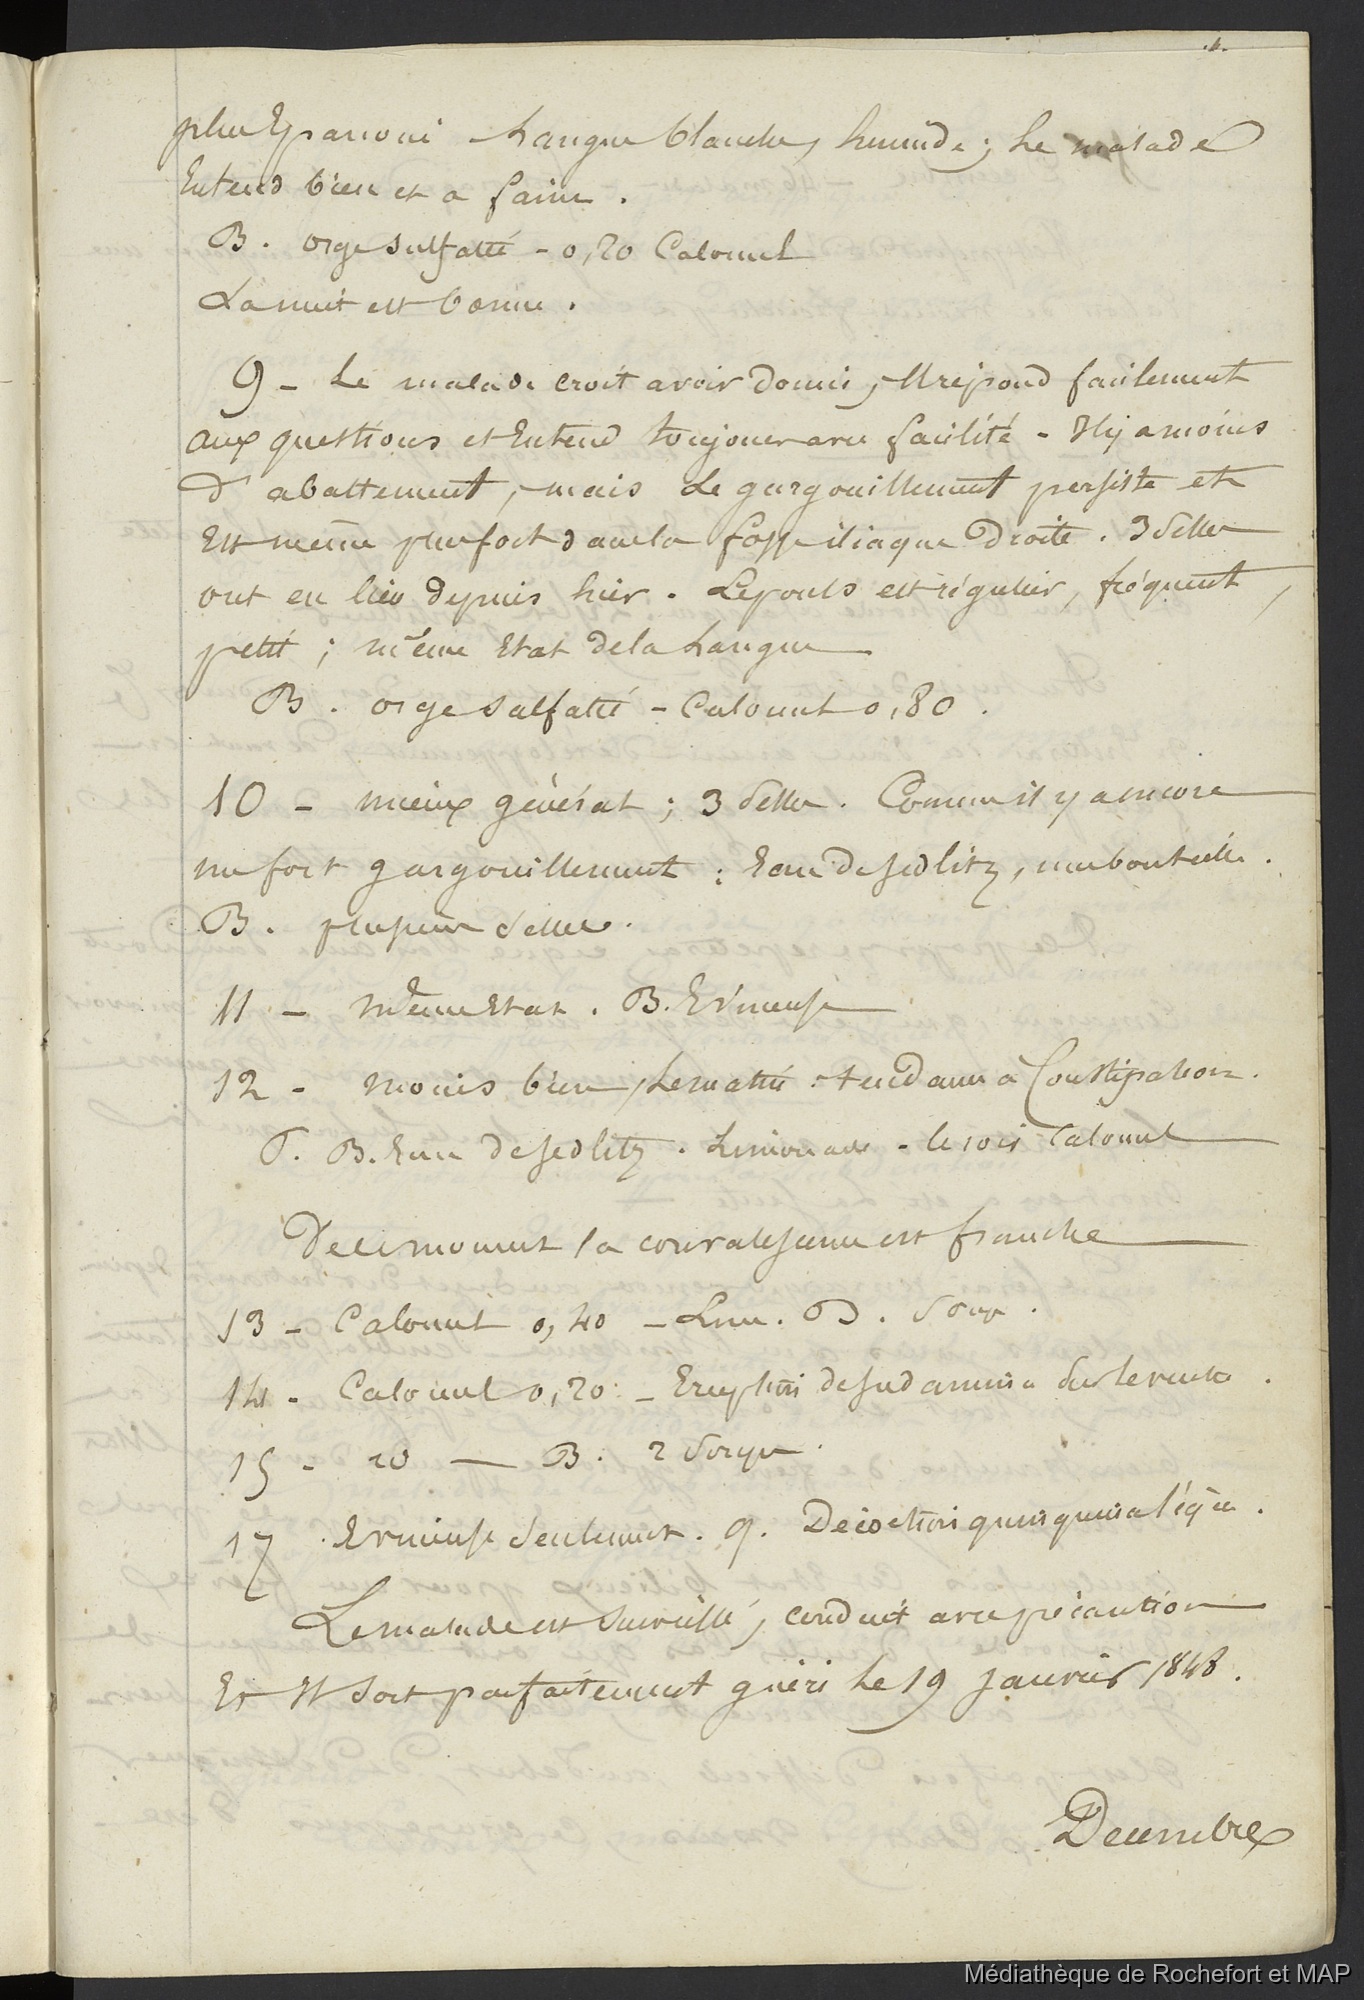 plus Epanoui - Langue blanche, humide; Le malade
Entend bien et a faim.
B. orge sulfatté - 0,20 Calomel
La nuit est bonne.
9 - Le malade croit avoir dormi, Il répond facilement
aux questions et Entend toujours avec facilité - Il y a moins
d'abattement, mais le gargouillement persiste et
Est même plus fort dans la fosse iliaque Droite. 3 Selles
ont eu lieu depuis hier. Le pouls est régulier, fréquent,
petit; même Etat de la Langue
B. orge sulfatté - Calomel 0,80.
10 - mieux général; 3 Selles. Comme il y a encore
un fort gargouillement: Eau de sedlitz, une bouteille.
B. plusieurs Selles.
11 - même Etat. B. Er'meuse
12 - moins bien, Le matin: tendance à Constipation.
B. Eau de sedlitz. Limonade - le soir Calomel
De ce moment la convalescence est franche
13 - Calomel 0,40 - Lim. B. Soup.
14 - Calomel 0,20 - Eruption de sudamina sur le ventre.
15 - 20 — B. 2 Soupes.
17 Er'meuse Seulement. q. Décoction quinquina légère.
Le malade est surveillé, conduit avec précaution
Et Il Sort parfaitement guéri Le 19 Janvier 1848.
Decembre
Médiathèque de Rochefort et MAP